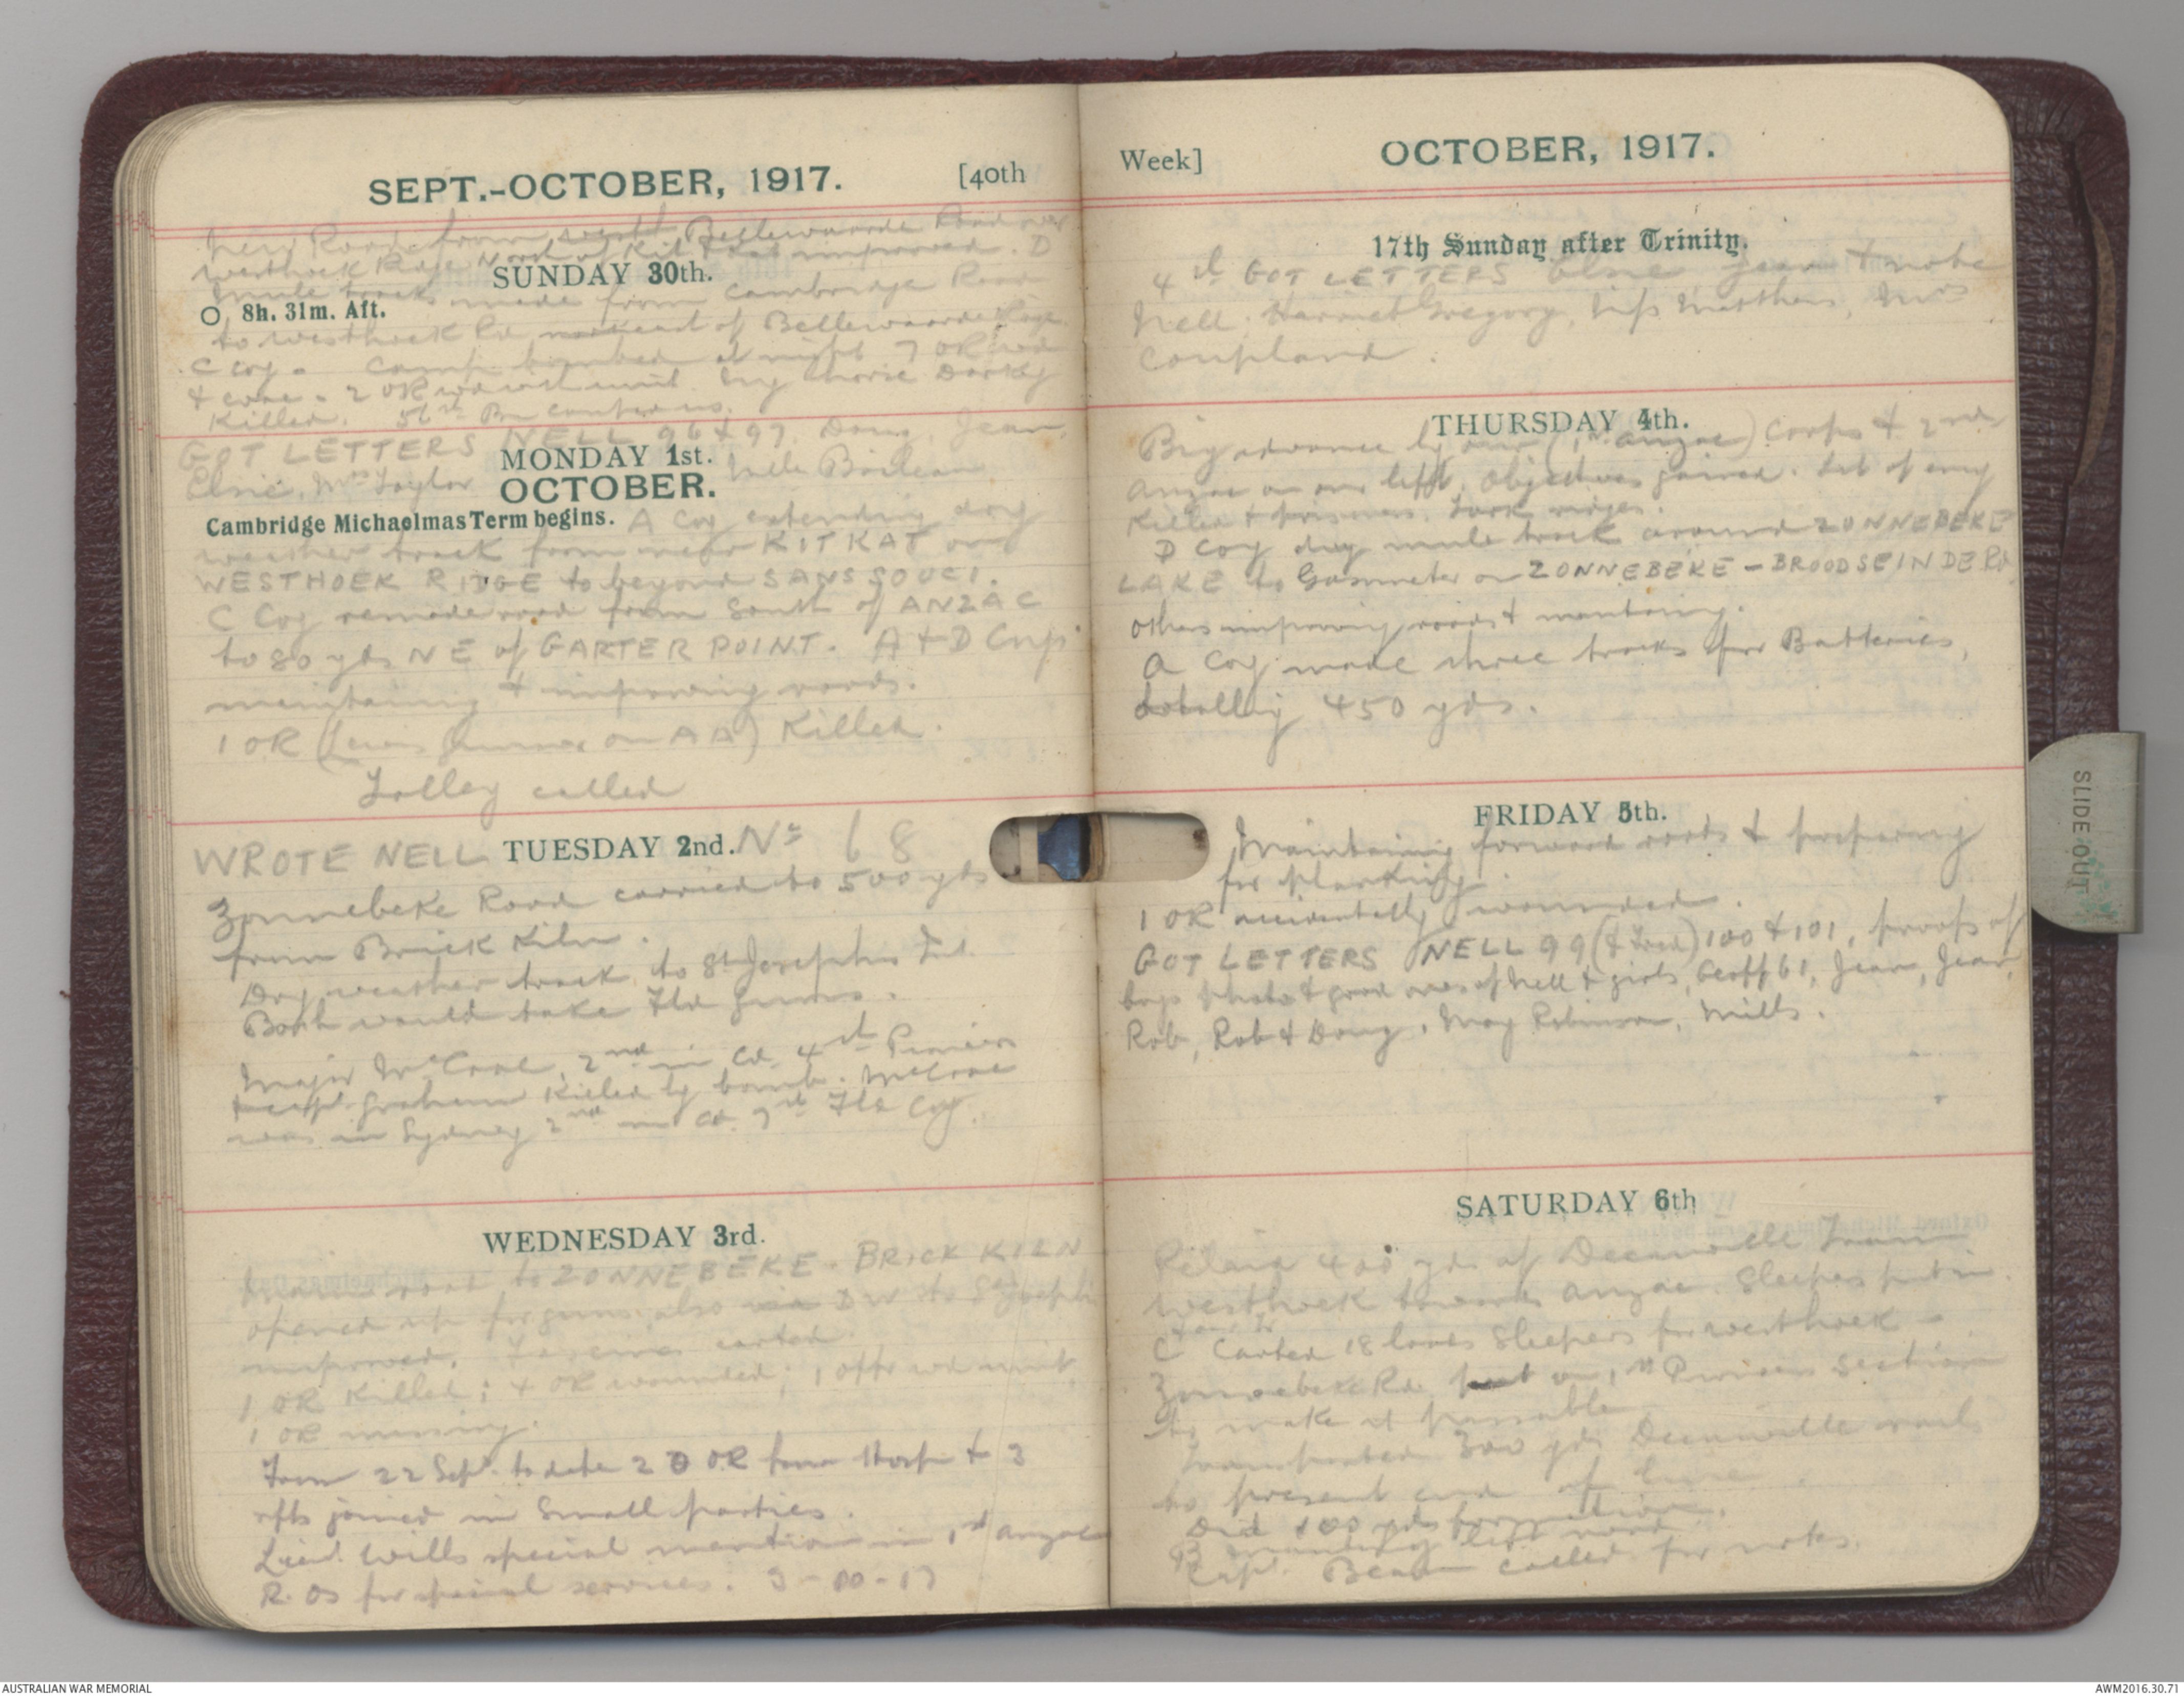 SEPT.-OCTOBER, 1917. [40th
New Road from Bellewaarde Road over
Westhoek Ridge North of Kit Kat improved. D
SUNDAY 30th.
mule track made from Cambridge Road
O 8h. 31m. Aft.
to Westhoek Rd of Bellewaarde Ridge
C Coy. Camp bombed at night 7 OR wd
& evac. 2 OR wd with unit. My horse Darky
Killed. 56th Bn
GOT LETTERS NELL 96 & 97. Doug, Jean,
MONDAY 1st.
Elsie, Mrs Taylor Mlle Boileau
OCTOBER.
Cambridge Michaelmas Term begins. A Coy extending dry
weather track from near KIT KAT over
WESTHOEK RIDGE to beyond SANS SOUCI.
C Coy remade road from South of ANZAC
to 80 yds NE of GARTER POINT. A & D Coys
maintaining & improving roads.
1 OR (Lewis Gunner on AA) Killed.
Lolley called
WROTE NELL TUESDAY 2nd. No 68
Zonnebeke Road carried to 500 yds
from Brick Kiln.
Dry weather track to St Josephs Inst.
Both would take Fld guns.
Major McCrae, 2nd in Cd. 4th Pioneers
& Capt. Graham Killed by bomb. McCrae
was in Sydney 2nd in Cd. 7th Fld Coy.
WEDNESDAY 3rd.
road to ZONNEBEKE. BRICK KILN
opened up for guns also DW to St Joseph
improved. Fascines carted.
1 OR Killed; 4 OR wounded; 1 offr wd unit
1 OR missing.
From 22 Sept. to date 20 OR from Hosp & 3
rfts joined in small parties.
Lieut. Wills special mention in 1st Anzac
R.Os for special services. 3-10-17
Week] OCTOBER, 1917.
17th Sunday after Trinity.
4th GOT LETTERS Elsie Jean & note
Nell. Harriet Gregory, Miss Matthews, Mrs
Coupland.
THURSDAY 4th.
Big advance by our (1st Anzac) Corps & 2nd
Anzac on our left. Objectives gained. Lot of enemy
Killed & prisoners. Took ridges.
D Coy dug mule track around ZONNEBEKE
LAKE to Gasometer on ZONNEBEKE - BROODSEINDE Rd.
others improving roads & maintaining.
A Coy made three tracks for Batteries,
totalling 450 yds.
FRIDAY 5th.
Maintaining forward roads & preparing
for planking.
1 OR accidentally wounded.
GOT LETTERS NELL 99 (& Fred) 100 & 101, proofs of
boys photo & good ones of Nell & girls, Geoff 61, Jean, Jean,
Rob, Rob & Doug, May Robinson, Mills.
SATURDAY 6th
Relaid 400 yds of Decauville Tram
Westhoek towards Anzac. Sleepers put in.
C Carted 18 loads sleepers for Westhoek -
Zonnebeke Rd. put on 1st Pioneers section
to make it passable
Transported 300 yds Decauville rails
to present end of line.
Did 100 yds formation.
B left road
Capt. Bean called for notes.
SLIDE OUT
AUSTRALIAN WAR MEMORIAL
AWM2016.30.71